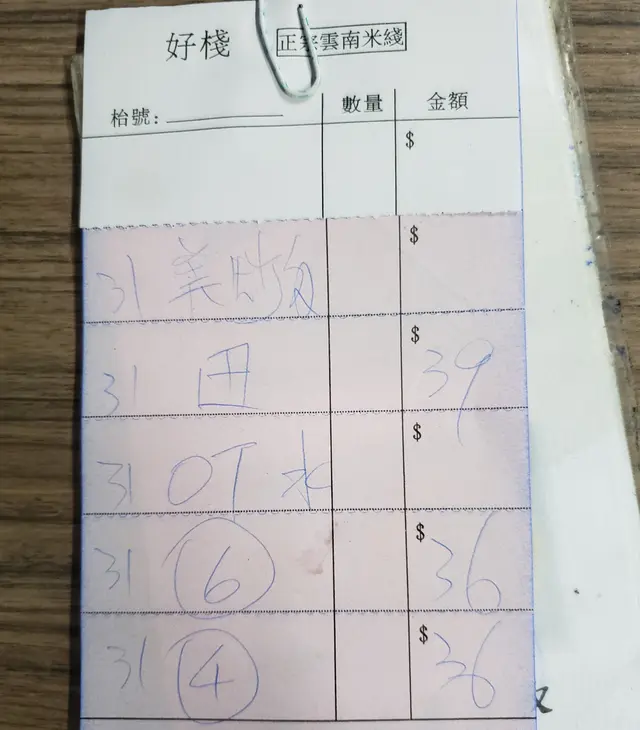 好棧 正宗雲南米綫
枱號: 數量 金額
$
31 $
31 $ 39
31 OT 水 $
31 6 $ 36
31 4 $ 36